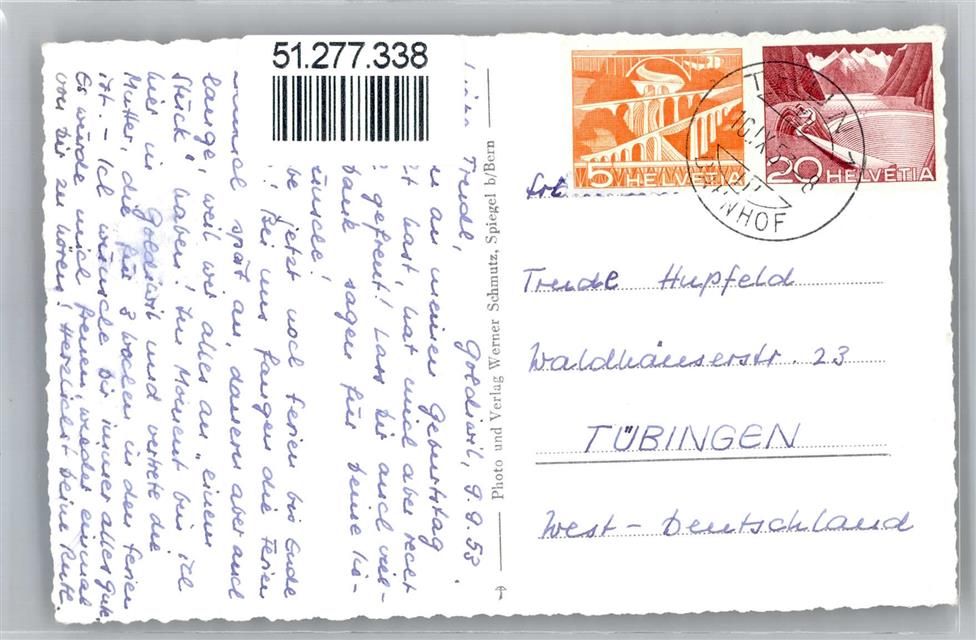 51.277.338
5 HELVETIA
20 HELVETIA
BAHNHOF
Trudel Hupfeld
Waldhäuserstr. 23
TÜBINGEN
West-Deutschland
Photo und Verlag Werner Schmutz, Spiegel b/Bern
Goldiwil, 9.9.53.
Trudl,
an meinen Geburtstag
hast, hat mich aber recht
gefreut! Lass Dir auch viel-
dank sagen für Deine Wünsche!
jetzt noch Ferien bis Ende
Bei uns fangen die Ferien
spät an, dauern aber auch
lange, weil wir alles an "einem
Stück" haben! Im Moment bin ich
hier in Goldiwil und vertrete die
Mutter, die für 3 Wochen in den Ferien
ist. - Ich wünsche Dir immer alles Gute.
Es würde mich freuen, wieder einmal
von Dir zu hören! Herzlichst Deine Ruth.